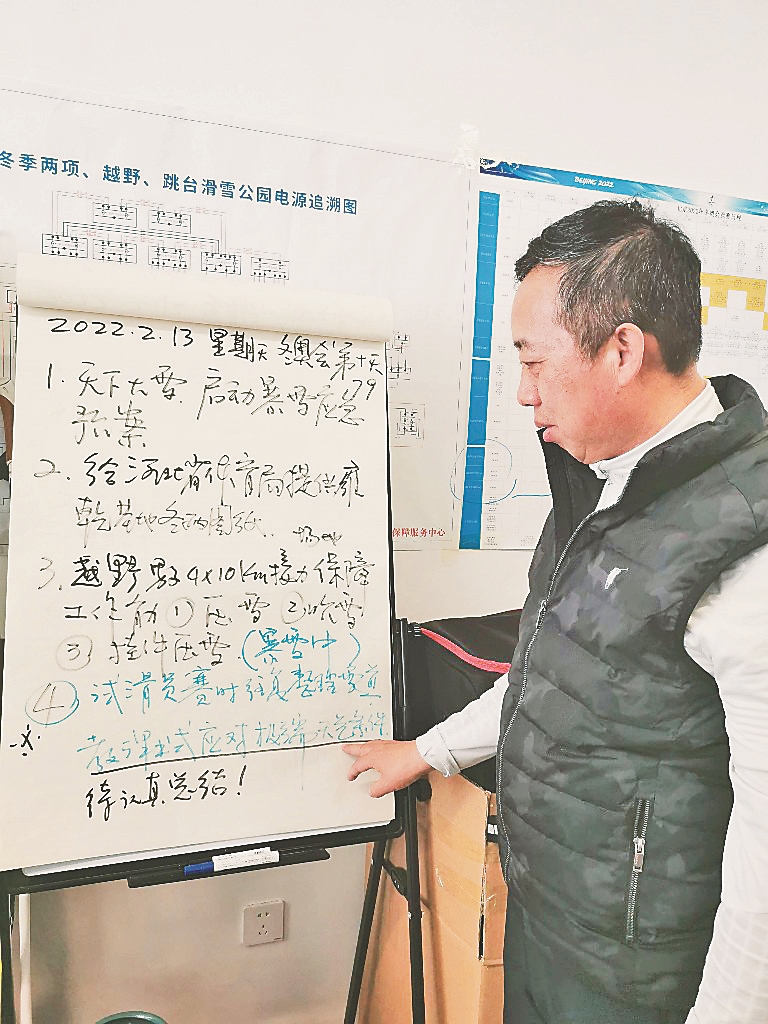 冬季两项、越野、跳台滑雪公园电源追溯图
BEIJING 2022
保障服务中心
2022.2.13 星期天 冬奥会第十天
179
1. 天下大雪 启动暴雪应急
预案
2. 给河北省体育局提供雍
乾基地冬两图纸.
场地
3. 越野男子4x10km接力保障
工作前 ① 压雪 ② 吹雪
③ 挂件压雪 (暴雪中)
④ 试滑员赛时往复整踏雪道
教科书式应对极端天气条件
待认真总结!